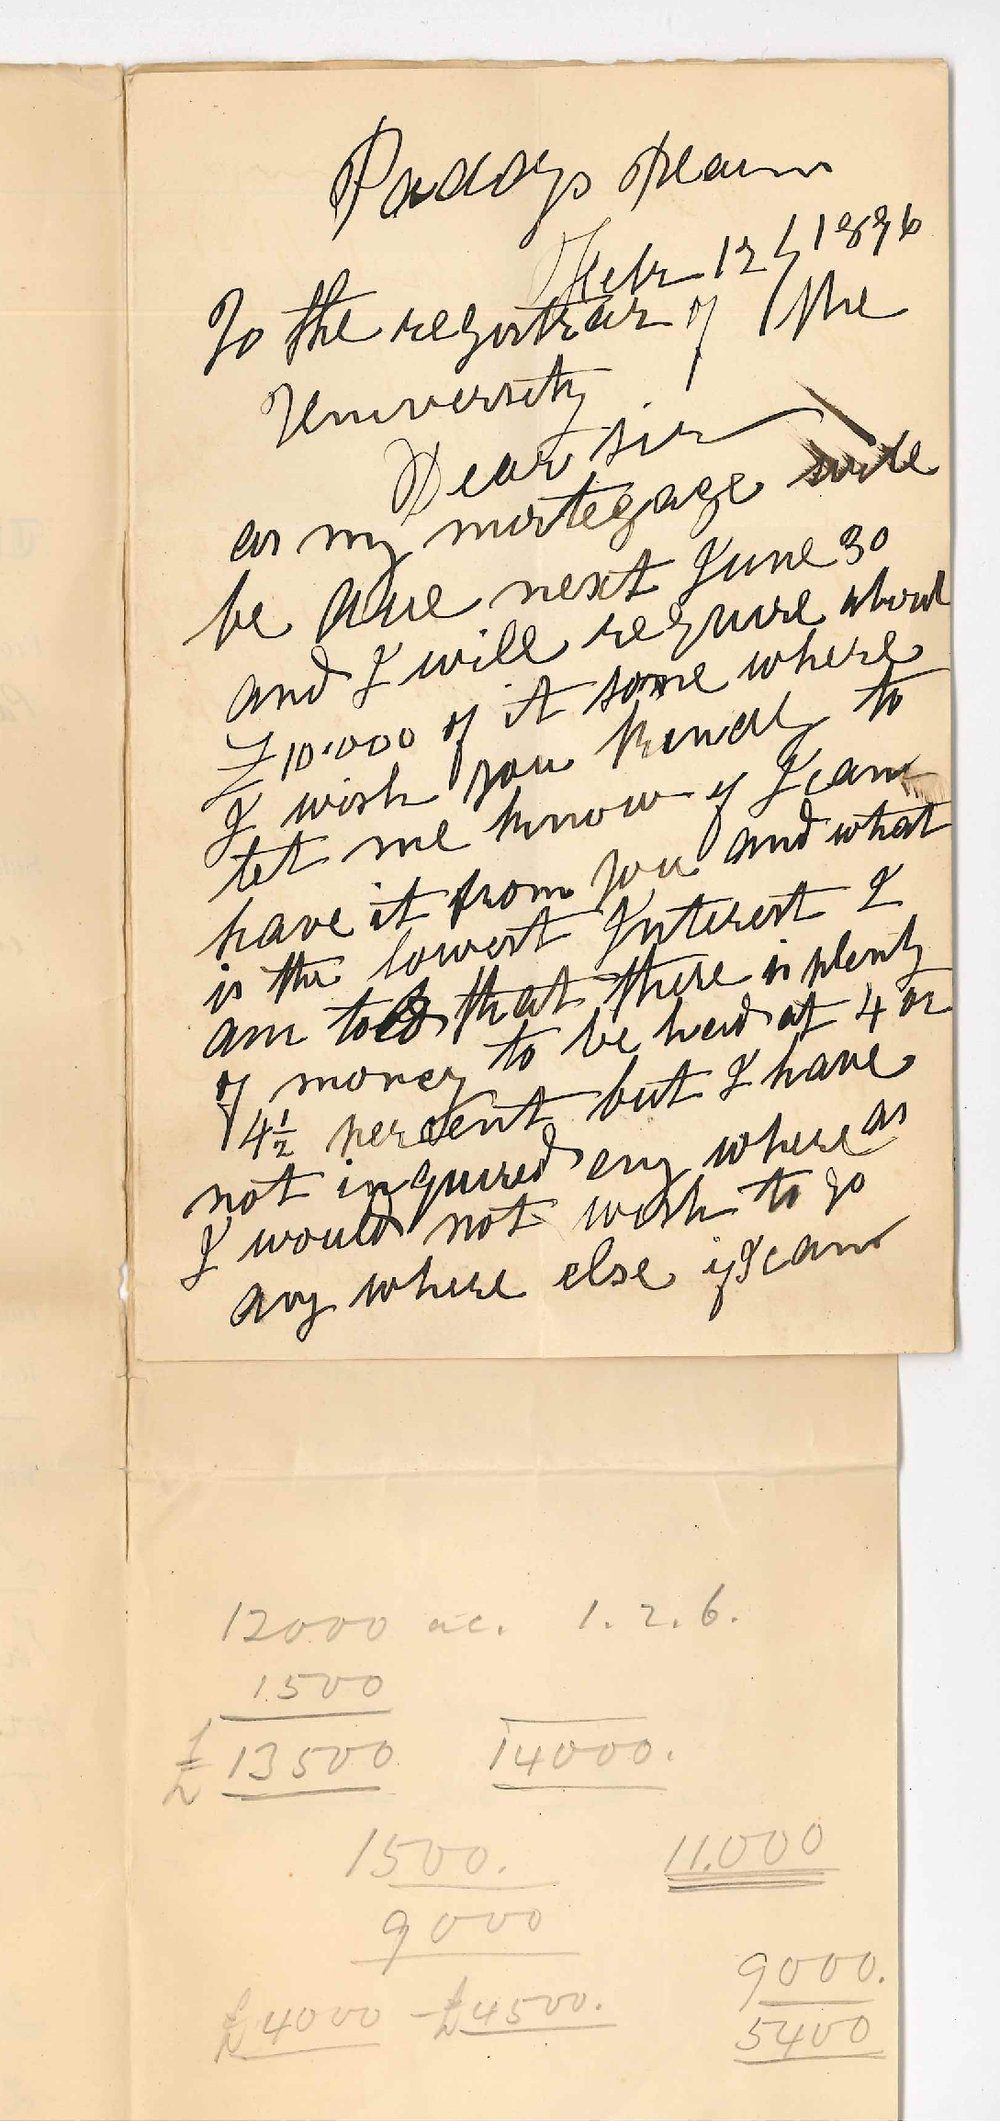 Paddys
Feb 12 1896
To the registrar of The
University
Dear Sir
as my mortegage will
be due next June 30
and I will require about
£10.000 of it some where
I wish you kindly to
let me know if I can
have it from you and what
is the lowest Interest I
am told that there is plenty
of money to be had at 4 or
4½ per cent but I have
not inquired any where as
I would not wish to go
any where else if I can
12000 ac. 1. 2. 6.
1500
£ 13500 14000.
1500. 11.000
9000
9000.
£4000 - £4500.
5400